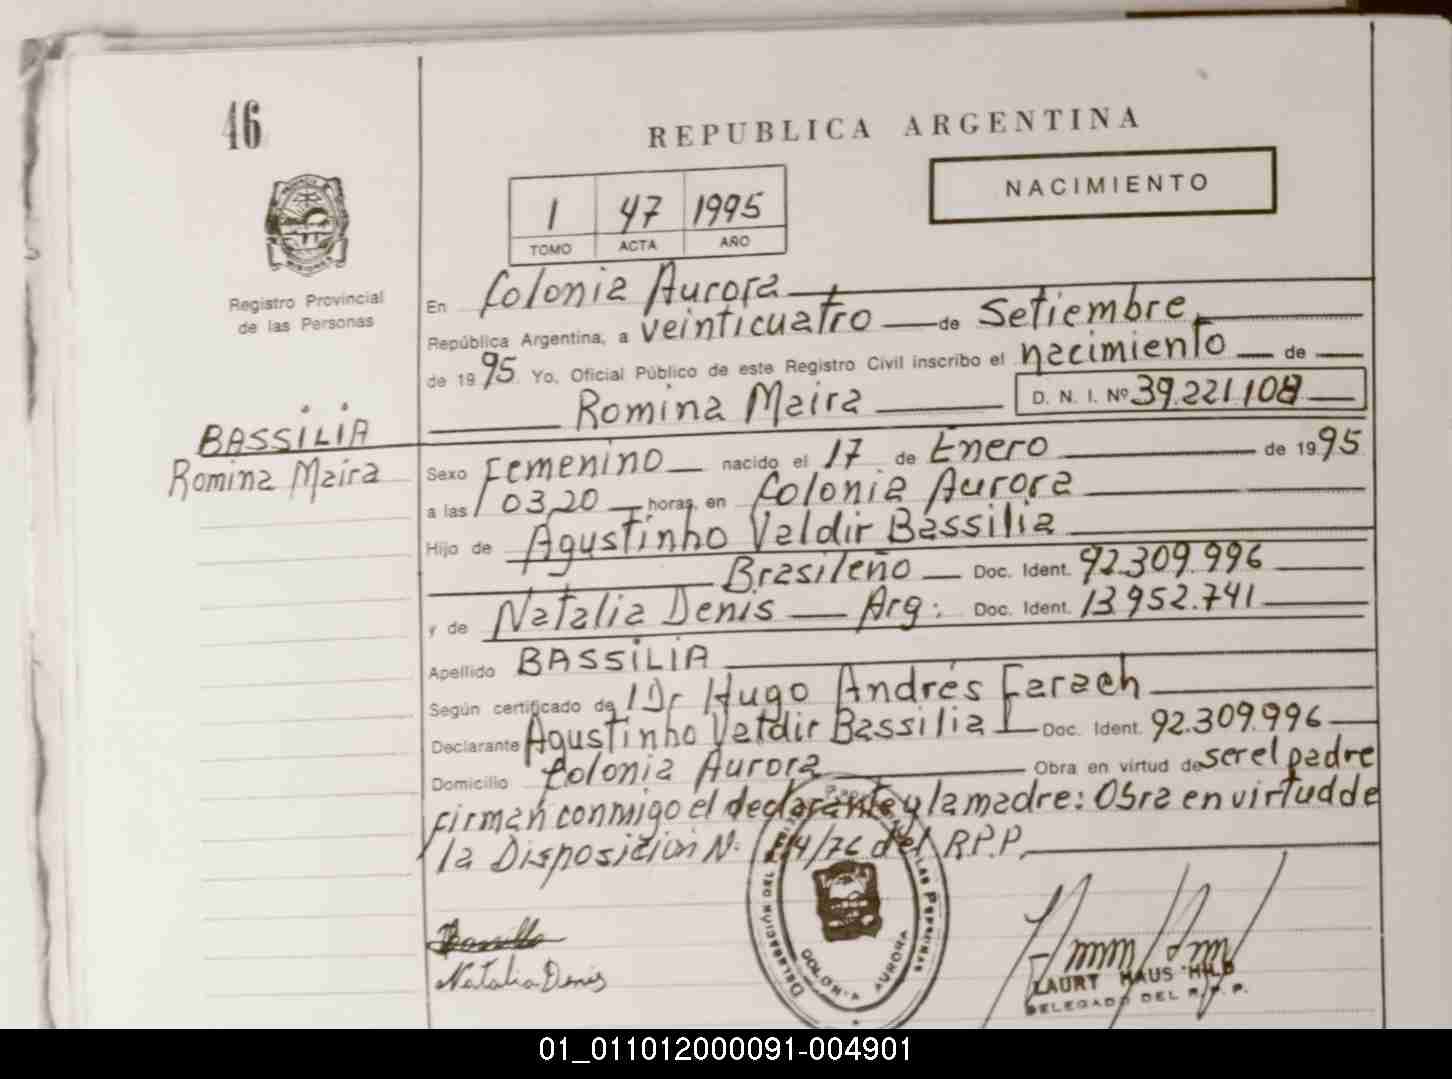 46
REPUBLICA ARGENTINA
NACIMIENTO
1 47 1995
TOMO ACTA AÑO
Registro Provincial
de las Personas
En Colonia Aurora
República Argentina, a veinticuatro de Setiembre
de 1995. Yo, Oficial Público de este Registro Civil inscribo el nacimiento de
Romina Maira D. N. I. Nº 39.221.108
BASSILIA
Romina Maira
Sexo Femenino nacido el 17 de Enero de 1995
a las 03,20 horas, en Colonia Aurora
Hijo de Agustinho Valdir Bassilia
Brasileño Doc. Ident. 92.309.996
y de Natalia Denis Arg: Doc. Ident. 13.952.741
Apellido BASSILIA
Según certificado de Dr Hugo Andrés Farach
Declarante Agustinho Valdir Bassilia Doc. Ident. 92.309.996
Domicilio Colonia Aurora Obra en virtud de ser el padre
firman conmigo el declarante y la madre: Obra en virtud de
la Disposición N: /76 del R.P.P.
Natalia Denis
COLONIA AURORA
HAUS
DELEGADO DEL R.P.P.
01_011012000091-004901